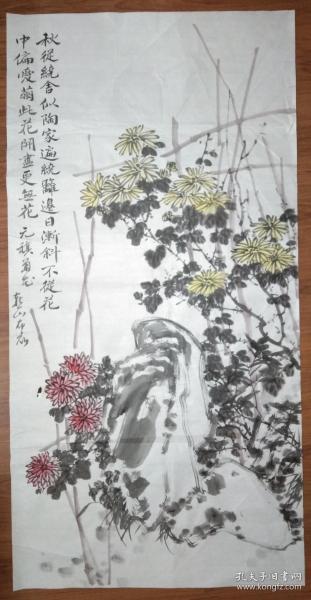 秋從繞舍似陶家遍繞籬邊日漸斜不從花
中偏愛菊此花開盡更無花 元稹菊花
孔夫子旧书网